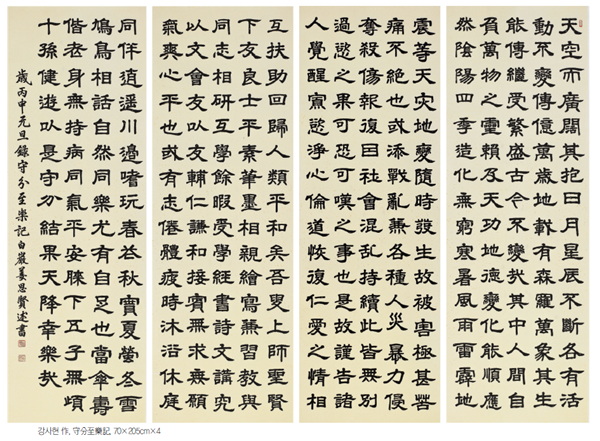 天空而廣闊其抱日月星辰不斷各有活
動不變傳億萬歲地載有森羅萬象其生
能傳繼受繁盛古今不變哉其中人間自
負萬物之靈賴及天功地德變化能順應
然陰陽四季造化無窮寒暑風雨雷霹地
震等天灾地變隨時發生故被害極甚苦
痛不絕也或添戰亂兼各種人災暴力傾
奪殺傷報復日社會混乱持續此皆無別
過慾之果可恐可嘆之事也是故謹告諸
人覺醒寡慾淨心倫道恢復仁愛之情相
互扶助回歸人類平和矣吾叟上師聖賢
下友良士平素筆墨相親繪寫兼習敎與
同志相研互學餘暇受學經書詩文講究
以文會友以友輔仁謙和接賓無求無辱
氣爽心平也或有志倦體疲時沐浴休庭
同伴逍遥川邊嗜玩春花秋實夏蛍冬雪
鳩鳥相話自然同樂尤有自足也當傘壽
偕老身無持病同氣平安膝下五子無頉
十孫健遊以是守分結果天降幸樂哉
歲丙申元旦錄守分至樂記 白巖姜思賢述書
강사현 作, 守分至樂記, 70×205cm×4